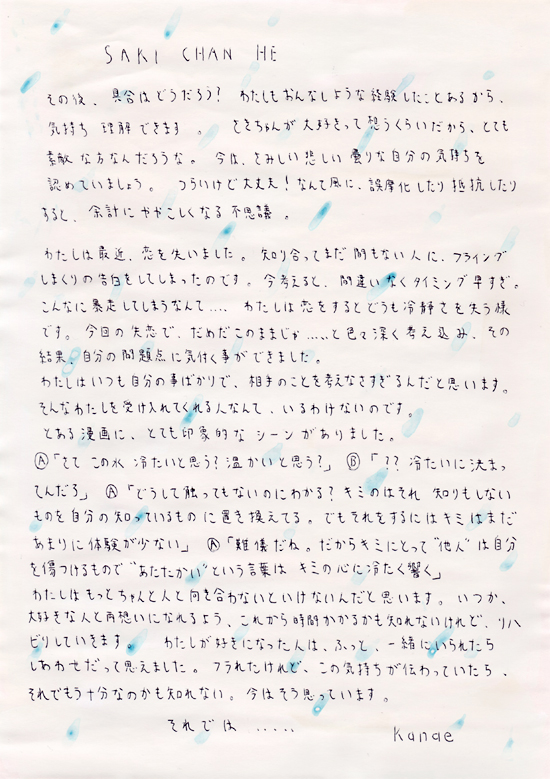 SAKI CHAN HE
その後、具合はどうだろう? わたしもおんなじような経験したことあるから、
気持ち 理解できます 。 ときちゃんが大好きって想うくらいだから、とても
素敵な方なんだろうな。 今は、さみしい悲しい曇りな自分の気持ちを
認めていましょう。 つらいけど大丈夫!なんて風に、誤魔化したり抵抗したり
すると、余計にややこしくなる不思議 。
わたしは最近、恋を失いました。知り合ってまだ間もない人に、フライング
しまくりの告白をしてしまったのです。今考えると、間違いなくタイミング早すぎ。
こんなに暴走してしまうなんて.... わたしは恋をするとどうも冷静さを失う様
です。今回の失恋で、だめだこのままじゃ.....と色々深く考え込み、その
結果、自分の問題点に気付く事ができました。
わたしはいつも自分の事ばかりで、相手のことを考えなさすぎるんだと思います。
そんなわたしを受け入れてくれる人なんて、いるわけないのです。
とある漫画に、とても印象的なシーンがありました。
Ⓐ「さて この水 冷たいと思う?温かいと思う?」 Ⓑ「?? 冷たいに決まっ
てんだろ」 Ⓐ「どうして触ってもないのにわかる?キミのはそれ 知りもしない
ものを自分の知っているものに置き換えてる。でもそれをするにはキミはまだ
あまりに体験が少ない」 Ⓐ「難儀だね。だからキミにとって“他人”は自分
を傷つけるもので“あたたかい”という言葉は キミの心に冷たく響く」
わたしはもっとちゃんと人と向き合わないといけないんだと思います。いつか、
大好きな人と両想いになれるよう、これから時間かかるかも知れないけれど、リハ
ビリしていきます。 わたしが好きになった人は、ふっと、一緒にいられたら
しあわせだって思えました。フラれたけれど、この気持ちが伝わっていたら、
それでもう十分なのかも知れない。今はそう思っています。
それでは .....
Kanae